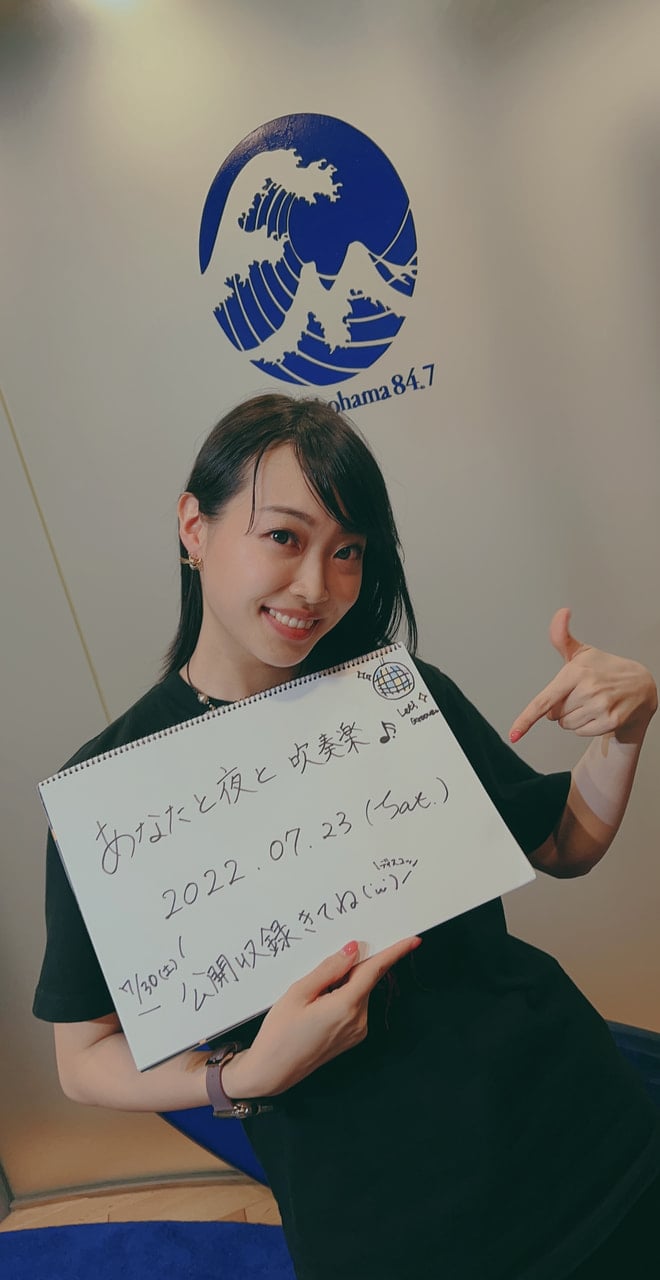 ohama 84.7
Let's
あなたと夜と吹奏楽♪
2022.07.23 (Sat.)
\ディスコッ/
7/30(土) 公開収録きてね(‘ω’)ノ